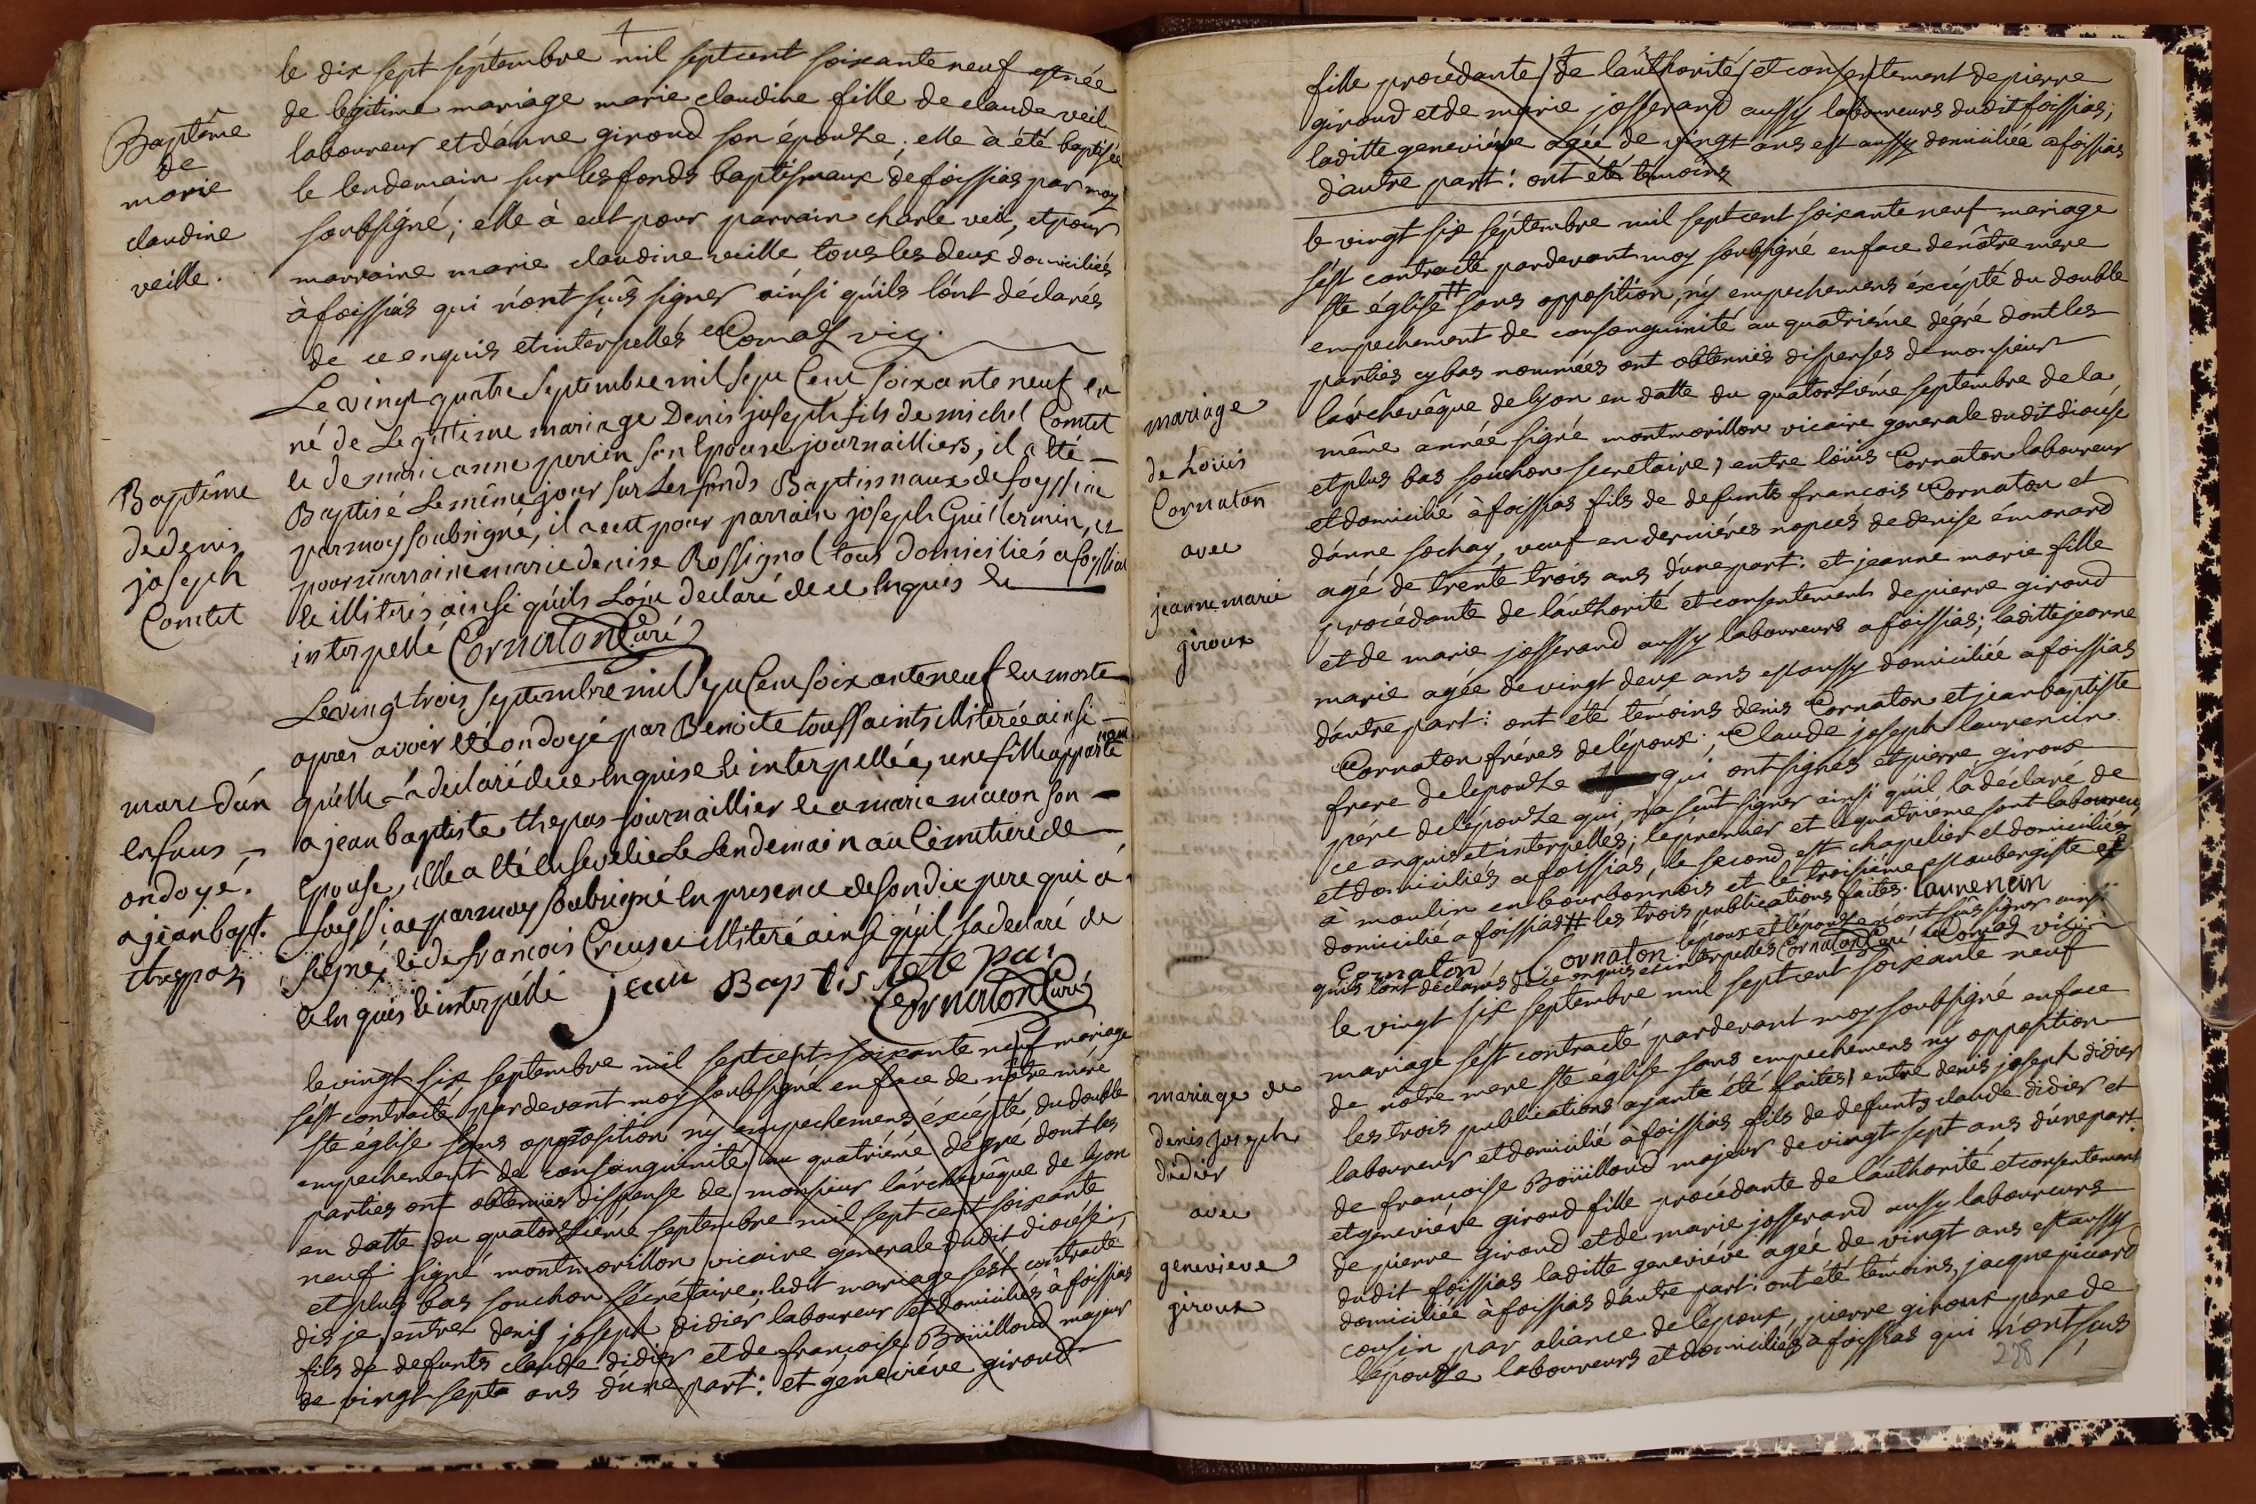 le dix sept séptembre mil septcent soixante neuf est née
de legitime mariage marie claudine fille de claude veil
laboureur et d'anne giroud son épouse; elle à été baptisée
le lendemain sur les fonds baptismaux de foissias par moy
soubsigné; elle à eut pour parrain charle veil, et pour
marraine marie claudine veille tous les deux domiciliés
à foissias qui n'ont sçûs signer ainsi qu'ils l'ont declarés
de ce enquis et interpellés Cornas vic.
Baptême
de
marie
claudine
veille.
Le vingt quatre Septembre mil sept Cent soixante neuf est
né de Legitime mariage Denis joseph fils de michel Comtet
et de marie anne son Epouse journailliers, il a été
Baptisé Le même jour sur Les fonds Baptismaux de foyssiac
par moy soubsigné, il a eut pour parrain joseph Guillermin, et
pour marraine marie denise Rossignol tous domiciliés a foyssiac
et illiterés ainsi qu'ils L'ont declaré de ce Enquis et
interpellé Cornaton Curé
Baptême
de denis
joseph
Comtet
Le vingt trois Septembre mil sept Cent soixante neuf est morte
apres avoir été ondoyé par Benoite toussaint illiterée ainsi
qu'elle a declaré de ce Enquise et interpellée, une fille appartenante
a jean baptiste thepas journaillier et a marie macon son
Epouse, elle a été Ensevelie Le Lendemain au Cimetiere de
foyssiac par moy soubsigné En presence de son dit pere qui a
signé, et de françois Creuset illiteré ainsi qu'il l'a declaré de
ce Enquis et interpellé jean Baptiste te pa
Cornaton Curé
mort d'un
enfans
ondoyé.
a jean bapt.
theppaz
le vingt six septembre mil septcent soixante neuf mariage
s'est contracté pardevant moy soubsigné en face de nôtre mère
ste église sans opposition ny empechemens éxcépté du double
empechement de consanguinité au quatriémé dégré dont les
parties ont obtenües dispense de monsieur l'archevêque de lyon
en datte du quatorsiémé septembre mil septcent soixante
neuf signé montmorillon vicaire generale dudit diocése
et plus bas souchon sécrétaire; ledit mariage s'est contracté
dis je entre denis joseph didier laboureur et domicilié à foissias
fils de defunts claude didier et de françoise Boüilloud majeur
de vingt sept ans d'une part: et généviéve giroud
fille procédante de l'authorité et consentement de pierre
giroud et de marie josserand aussy laboureurs dudit foissias;
laditte geneviéve agée de vingt ans est aussy domiciliée a foissias
d'autre part: ont été témoins
le vingt six séptembre mil sept cent soixante neuf mariage
s'est contracté pardevant moy soubsigné en face de nôtre mere
ste église # sans opposition, ny empechemens éxcépté du double
empechement de consanguinité au quatriéme dégré dont les
parties cy bas nommées ont obtenuës dispenses de monsieur
l'archevêque de lyon en datte du quatorsiéme septembre de la
même année signé montmorillon vicaire generale dudit diocése
et plus bas souchon secretaire, entre loüis Cornaton laboureur
et domicilié à foissias fils de defunts françois Cornaton et
d'anne sochay, veuf en derniéres nopces de denise émonard
agé de trente trois ans d'une part: et jeanne marie fille
procédante de l'authorité et consentement de pierre giroud
et de marie josserand aussy laboureurs a foissias; laditte jeanne
marie agée de vingt deux ans est aussy domiciliée a foissias
d'autre part: ont été témoins denis Cornaton et jean baptiste
Cornaton fréres de l'époux; Claude joseph laurencin
frere de l'épouse qui ont signés et pierre giroux
pére de l'épouse qui n'a sçût signer ainsi qu'il l'a declaré de
ce enquis et interpellés; le premier et le quatriéme sont laboureurs
et domiciliés a foissias, le second est chapelier et domicilié
à moulin en bourbonnois et le troisiéme est aubergiste et
domicilié a foissias # les trois publications faites. Laurencin
Cornaton Cornaton l'époux et l'épouse n'ont sçûs signer ainsi
qu'ils l'ont declarés de ce enquis et interpellés Cornaton Curé Cornas vic
mariage
de Loüis
Cornaton
avec
jeanne marie
giroux
le vingt six septembre mil septcent soixante neuf
mariage s'est contracté pardevant moy soubsigné en face
de nôtre mere ste eglise sans empechemens ny opposition
les trois publications ayants été faites, entre denis joseph didier
laboureur et domicilié à foissias fils de defunts claude didier et
de françoise Boüilloud majeur de vingt sept ans d'une part.
et geneviéve giroud fille procédante de l'authorité et consentement
de pierre giroud et de marie josserand aussy laboureurs
dudit foissias laditte geneviéve agée de vingt ans est aussy
domiciliée à foissias d'autre part: ont été témoins, jacque picard
cousin par aliance de l'époux, pierre giroux pere de
l'épouse laboureurs et domiciliés a foissias qui n'ont sçus
mariage de
denis Joseph
didier
avec
genevieve
giroux
238